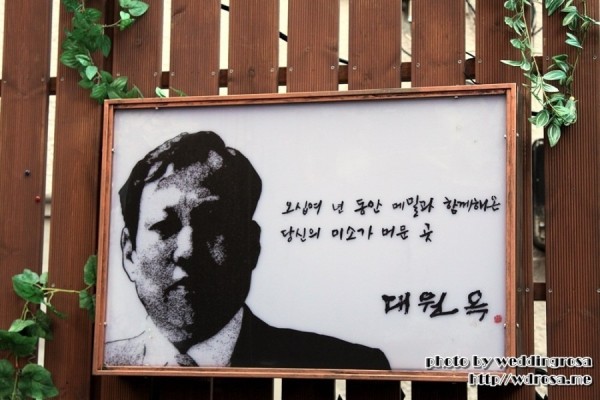 오십여 년 동안 메밀과 함께해온
당신의 미소가 머문 곳
대월옥
photo by weddingrosa
http://wdrosa.me